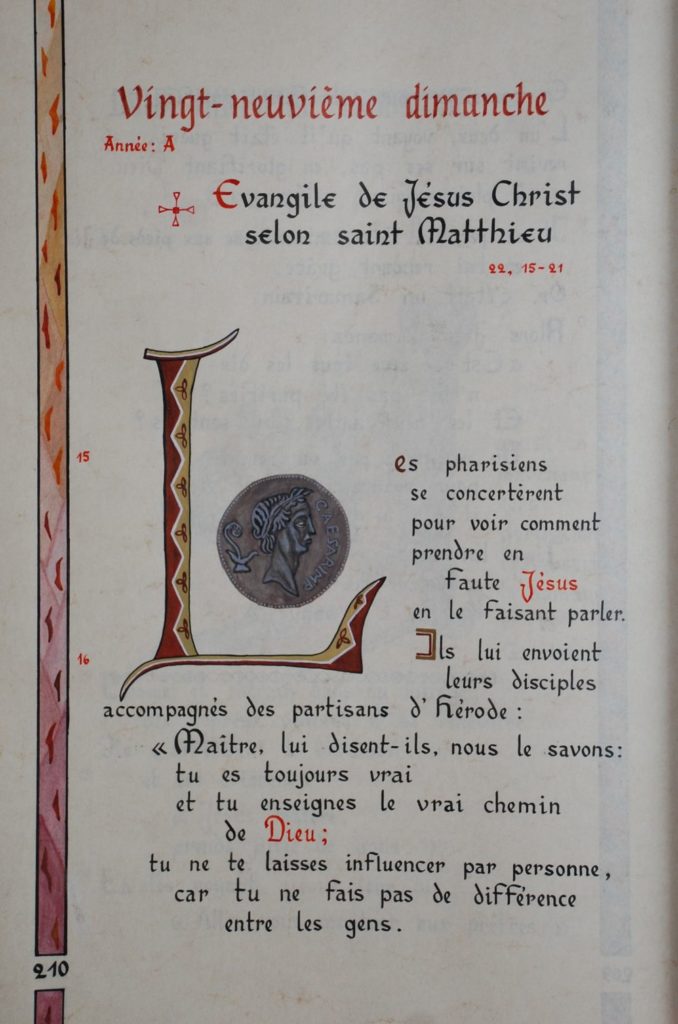 Vingt-neuvième dimanche
Année: A
Evangile de Jésus Christ
selon saint Matthieu
22, 15-21
15
Les pharisiens
se concertèrent
pour voir comment
prendre en
faute Jésus
en le faisant parler.
16
Ils lui envoient
leurs disciples
accompagnés des partisans d'Hérode :
« Maître, lui disent-ils, nous le savons:
tu es toujours vrai
et tu enseignes le vrai chemin
de Dieu;
tu ne te laisses influencer par personne,
car tu ne fais pas de différence
entre les gens.
210